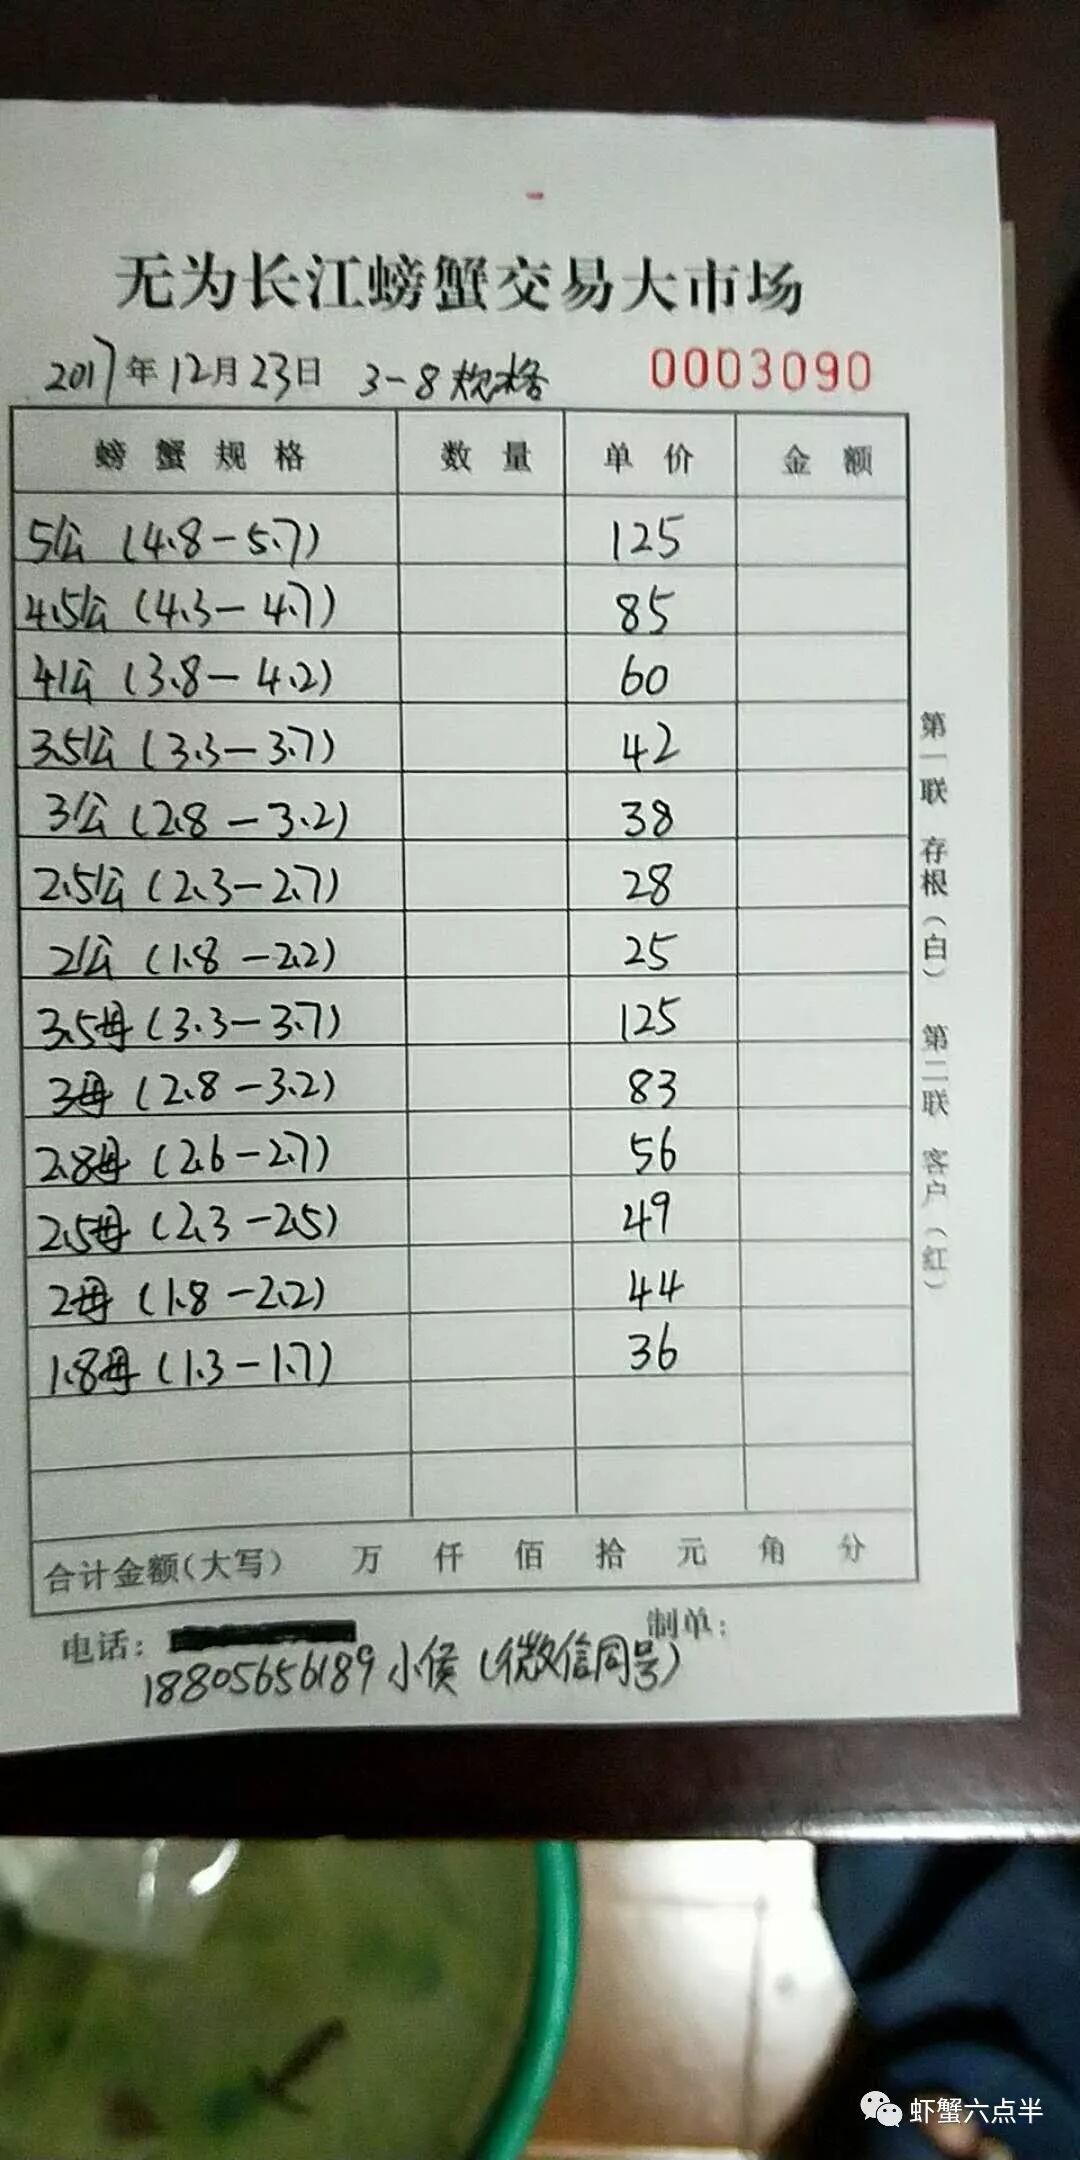 无为长江螃蟹交易大市场
2017年12月23日 3-8规格 0003090
螃蟹规格 数量 单价 金额
5公 (4.8-5.7) 125
4.5公 (4.3-4.7) 85
4公 (3.8-4.2) 60
3.5公 (3.3-3.7) 42
3公 (2.8-3.2) 38
2.5公 (2.3-2.7) 28
2公 (1.8-2.2) 25
3.5母 (3.3-3.7) 125
3母 (2.8-3.2) 83
2.8母 (2.6-2.7) 56
2.5母 (2.3-2.5) 49
2母 (1.8-2.2) 44
1.8母 (1.3-1.7) 36
合计金额(大写) 万 仟 佰 拾 元 角 分
电话: 制单:
18805656189小侯 (微信同号)
第一联 存根(白) 第二联 客户(红)
虾蟹六点半